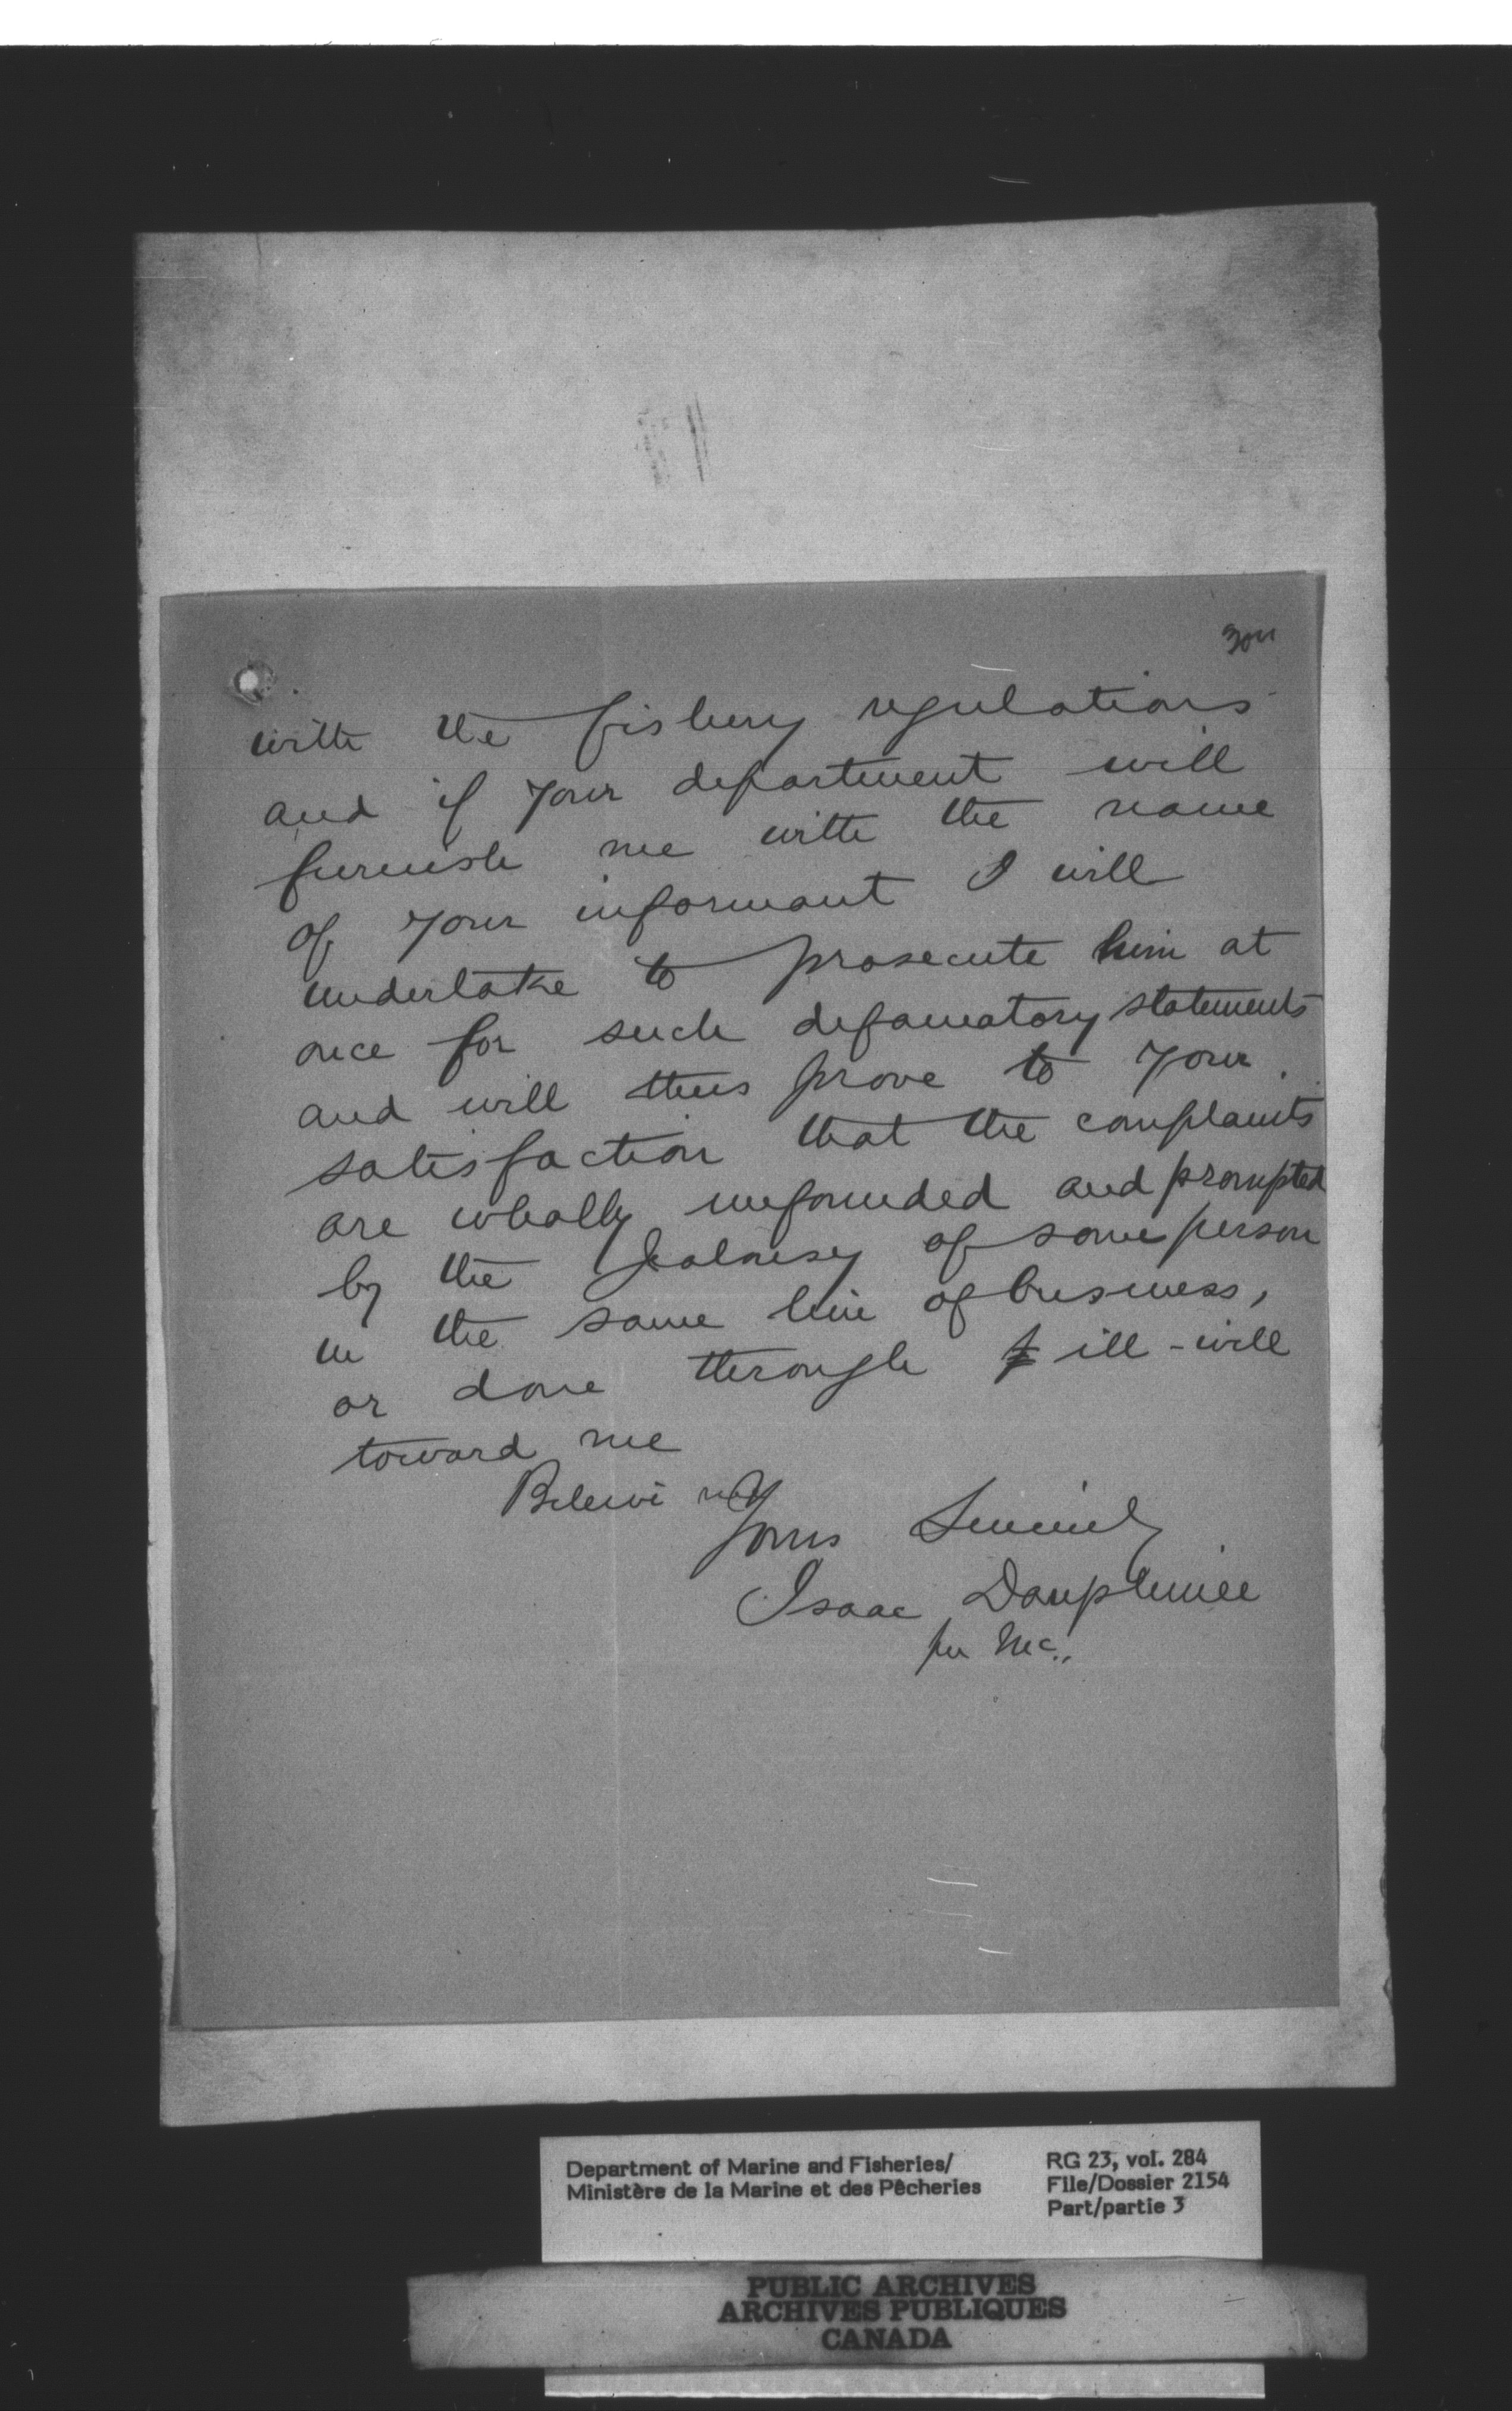 with the fishery regulations
and if your department will
furnish me with the name
of your informant I will
undertake to prosecute him at
once for such defamatory statements
and will thus prove to your
satisfaction that the complaints
are wholly unfounded and prompted
by the jealousy of some person
in the same line of business,
or done through ill-will
toward me
Believe me
Yours Sincerely
Isaac Dauphinee
per Mc.,
Department of Marine and Fisheries/
Ministère de la Marine et des Pêcheries
RG 23, vol. 284
File/Dossier 2154
Part/partie 3
PUBLIC ARCHIVES
ARCHIVES PUBLIQUES
CANADA